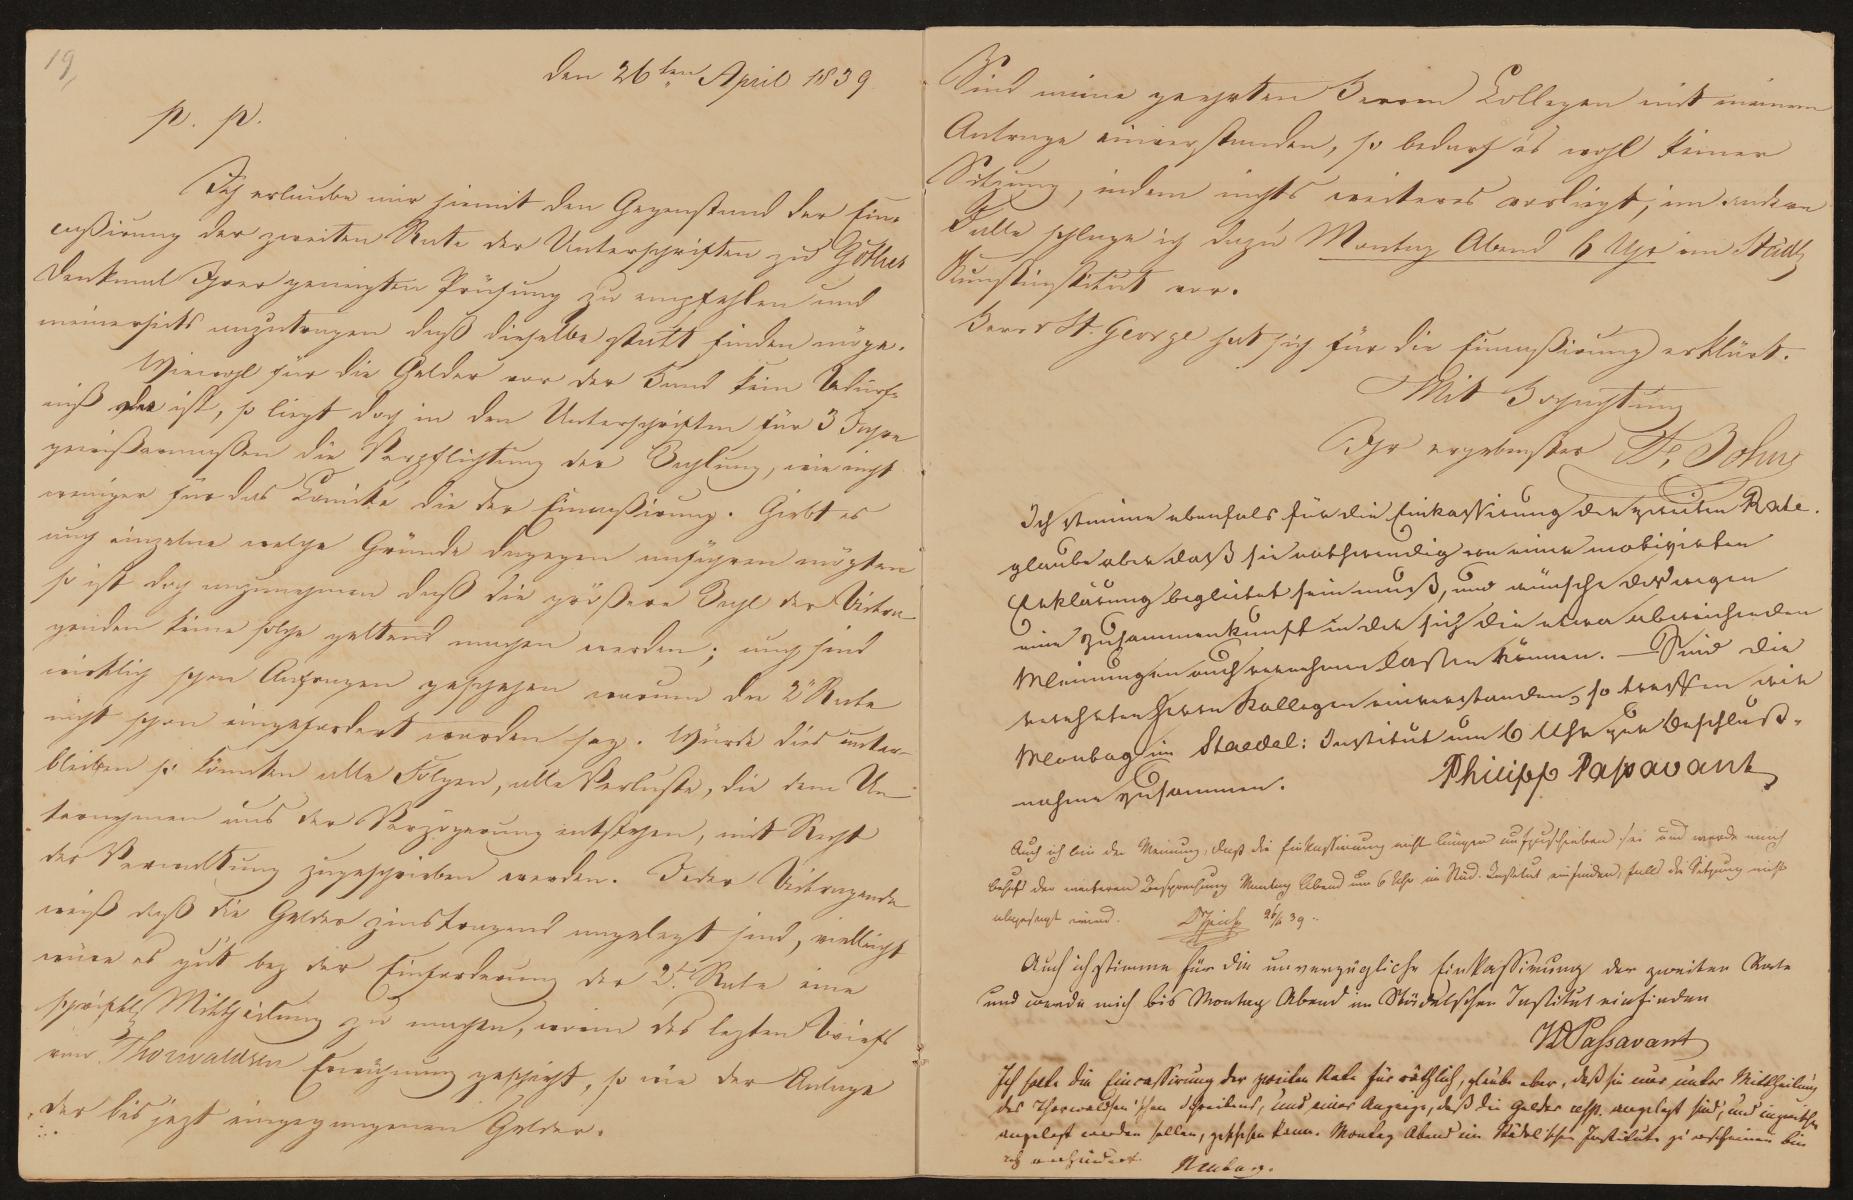 19,
den 26ten April 1839.
p. p.
Ich erlaube mir hiemit den Gegenstand der Ein-
cassirung der zweiten Rate der Unterschriften zu Göthes
Denkmal Ihrer geneigten Prüfung zu empfehlen und
meinerseits anzutragen daß dieselbe statt finden möge.
Wiewohl für die Gelder vor der Hand kein Bedürf-
niß da ist, so liegt doch in den Unterschriften für 3 Jahre
gewißermaßen die Verpflichtung der Zahlung, wie nicht
weniger für das Comité die der Einassirung. Giebt es
auch einzelne welche Gründe dagegen anführen möchten
so ist doch anzunehmen daß die größere Zahl der Beitra-
genden keine solche geltend machen werden; auch sind
wirklich schon Anfragen geschehen warum die 2e Rate
nicht schon eingefordert worden sey. Würde dies unter-
bleiben so könnten alle Folgen, alle Verluste, die dem Un-
ternehmen aus der Verzögerung entstehen, mit Recht
der Verwaltung zugeschrieben werden. Jeder Beitragende
weiß daß die Gelder zinstragend angelegt sind, vielleicht
wäre es gut bey der Einforderung der 2t. Rate eine
schriftl. Mittheilung zu machen, worin des lezten Briefs
von Thorwaldsen Erwähnung geschieht, so wie der Anlage
der bis jezt eingegangenen Gelder.
Sind meine geehrten Herren Collegen mit meinem
Antrage einverstanden, so bedarf es wohl keiner
Sitzung, indem nichts weiteres vorliegt, im andern
Falle schlage ich dazu Montag Abend 6 Uhr im Städl.
Kunstinstitut vor.
Herr v St. George hat sich für die Eincassirung erklärt.
Mit Hochachtung
Ihr ergebenster
Ich stimme ebenfals für die Einkassirung der zweiten Rate.
glaube aber daß sie nothwendig von einer motivirten
Erklärung begleitet sein muß, und wünsche deswegen
eine Zusammenkunft in der sich die etwa abweichenden
Meinungen auch vernehmen laßen können. — Sind die
verehrten Herrn Kollegen einverstanden, so treffen wir
Montag im Staedel: Institut um 6 Uhr zur Beschluß-
nahme zusammen.
Philipp Passavant
Auch ich bin der Meinung, daß die Einkassirung nicht länger aufzuschieben sei und werde mich
behufs der weiteren Besprechung Montag Abend um 6 Uhr im Städ. Institut einfinden, falls die Sitzung nicht
abgesagt wird. 26/4 39
Auch ich stimme für die unverzügliche Einkassirung der zweiten Rate
und werde mich bis Montag Abend im Städelschen Institut einfinden
JDPassavant
Ich halte die Eincassirung der zweiten Rate für räthlich, glaube aber, daß sie nur unter Mittheilung
des Thorwaldsen'schen Schreibens, und einer Anzeige, daß die Gelder angelegt sind, und
angelegt werden sollen, geschehen kann. Montag Abend im Städel'schen Institute zu erscheinen bin
ich verhindert.